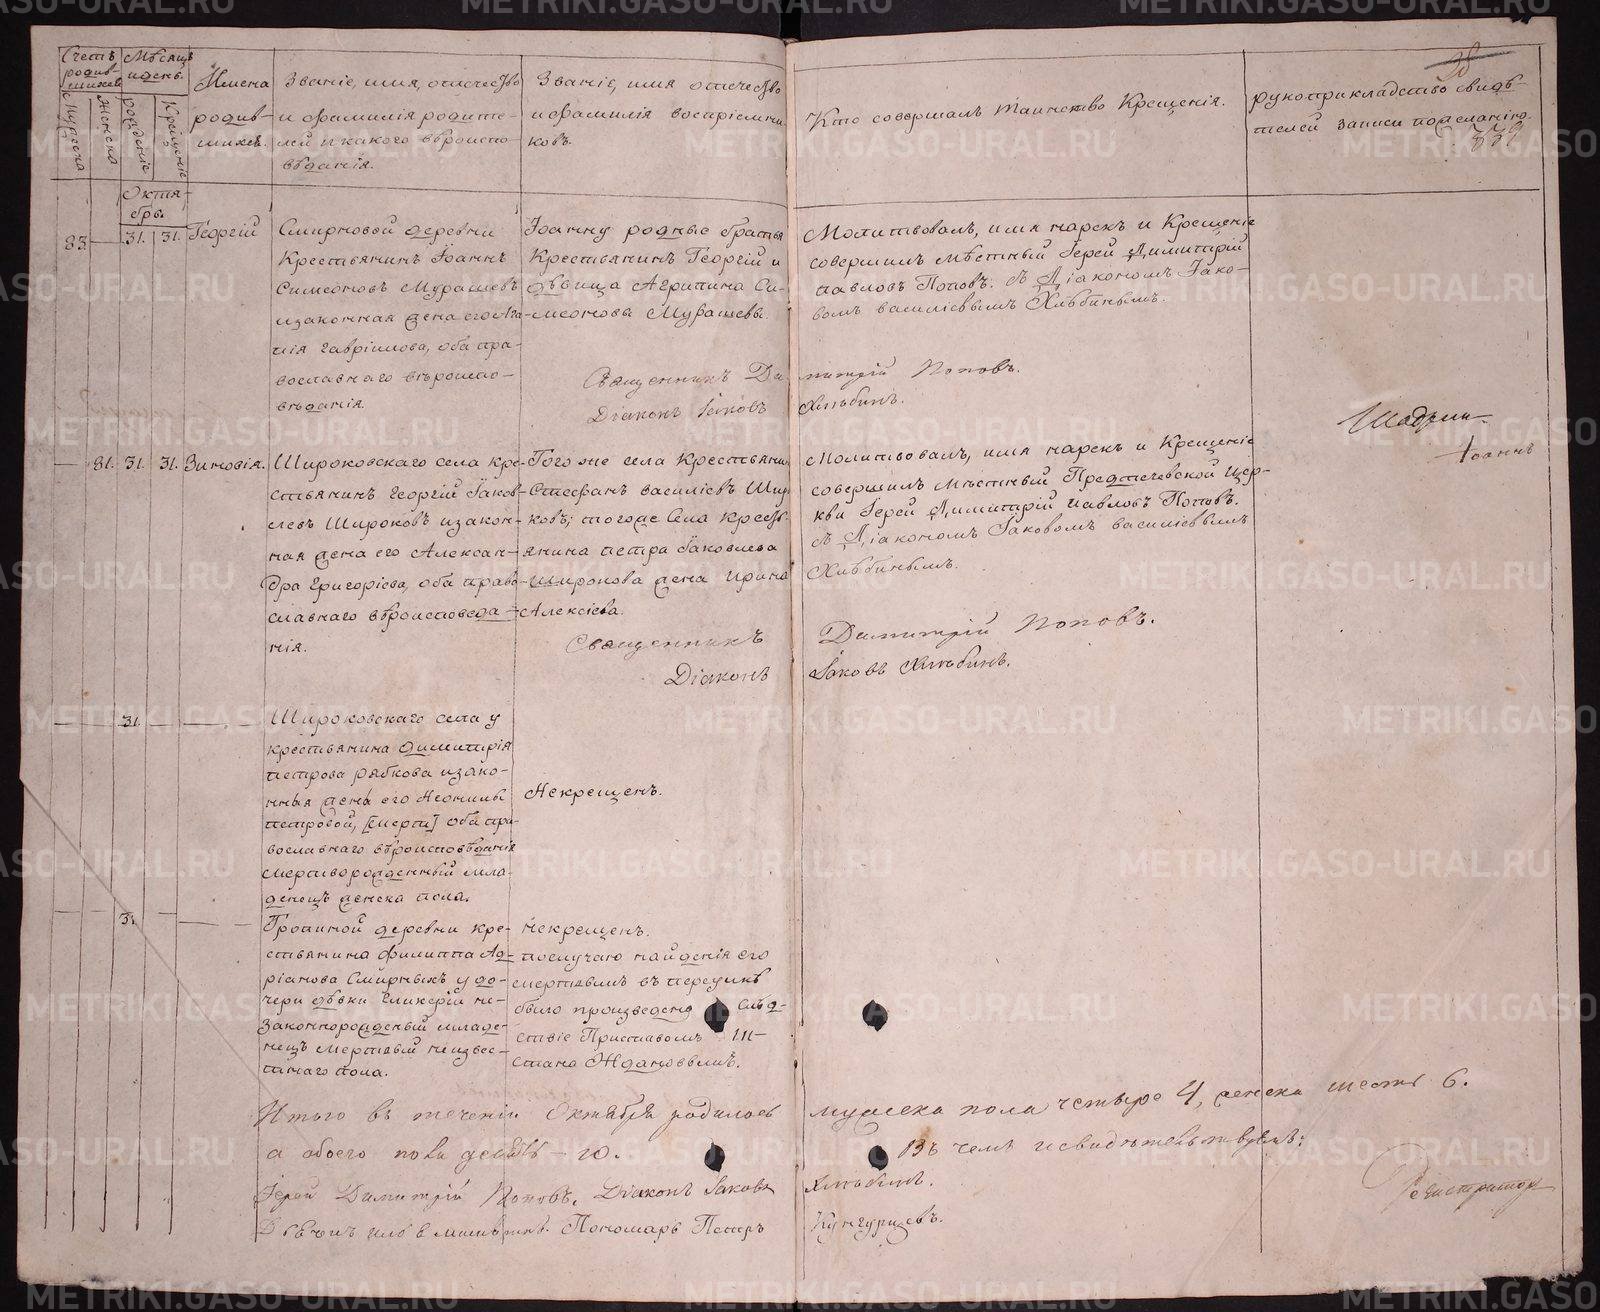 Счетъ родив-
шихся
Мѣсяцъ
и день
Мужеска
Женска
рожденіе
Крещеніе
Имена
родив-
шихся.
Званіе, имя, отечество
и фамилія родите-
лей и какого вѣроиспо
вѣданія.
Званіе, имя отечество
и фамилія воспріемни
ковъ.
Кто совершалъ таинство Крещенія.
рукоприкладство свидѣ-
телей записи по желанію.
339
Октя-
брь.
83
—
31.
31.
Георгій
Смирновой деревни
Крестьянинъ Іоаннъ
Симеоновъ Мурашевъ
и законная жена его Ага
пія Гавріилова, оба пра-
вославнаго вѣроиспо-
вѣданія.
Іоанну родные братья
Крестьянинъ Георгій и
дѣвица Агрипина Си-
меоновы Мурашевы.
Молитвовалъ, имя нарекъ и Крещеніе
совершилъ мѣстный Іерей Димитрій
павловъ Поповъ. съ Діакономъ Іако-
вомъ василіевымъ Хлѣбинымъ.
Священникъ Димитрій Поповъ.
Діаконъ Іаковъ Хлѣбинъ.
—
81.
31.
31.
Зиновія.
Широковскаго села кре-
стьянинъ Георгій Іаков
левъ Широковъ и закон-
ная жена его Алексан-
дра Григоріева, оба право
славнаго вѣроисповеда-
нія.
Того же села Крестьяни
Стефанъ василіевъ Широ
ковъ; того же Села Кресть
янина петра Іаковлева
Широкова жена Ирина
Алексіева.
Молитвовалъ, имя нарекъ и Крещеніе
совершилъ мѣстный Предтечевской Цер-
кви Іерей Димитрій павловъ Поповъ.
съ Діакономъ Іаковомъ василіевымъ
Хлѣбинымъ.
Іоаннъ
Священникъ Димитрій Поповъ.
Діаконъ Іаковъ Хлѣбинъ.
—
31.
—
Широковскаго села у
крестьянина димитрія
петрова рябкова и зако-
нныя жены его Неонилы
петровой, оба пра-
вославнаго вѣроисповѣданія
мертворожденный мла-
денецъ женска пола.
Некрещенъ.
—
31
—
деревни кре-
стьянина филиппа Ад-
ріанова Смирныхъ у до-
чери дѣвки Гликеріи не-
законнорожденый младе-
нецъ мертвый неизвес-
тнаго пола.
Некрещенъ.
послучаю найденія его
мертвымъ
было произведено слѣд-
ствіе Приставомъ III-
стана Ждановвымъ.
Итого въ теченіи Октября родилось мужеска пола четыре 4, женска шесть 6.
а обоего пола — 10. Въ чемъ и свидѣтельствуемъ:
Іерей Димитрій Поповъ. Діаконъ Іаковъ Хлѣбинъ.
Пономарь Петръ Кунгурцевъ.
Регистраторъ
METRIKI.GASO-URAL.RU